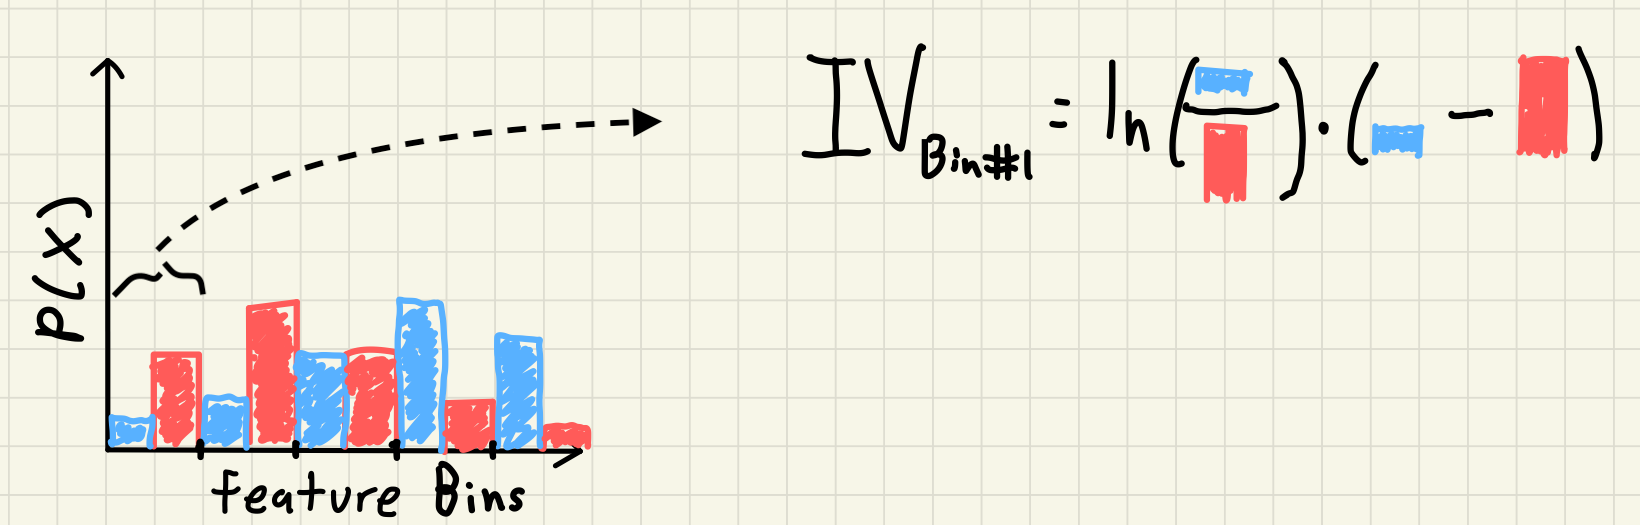 P(X)
Feature Bins
IV Bin#1 = ln( / ) · ( - )